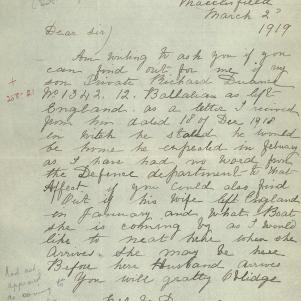 March 2nd
1919
Dear Sir
Am writing to ask you if you
can find out for me if my
son Private Richard
No 1342. 12. Battalian as left
England. as a letter I received
from him dated 18 of Dec 1918
in witch he stated he would
be home he expected in febuary
as I have had no word from
the Defence department to that
Affect if you could also find
Out if his wife left England
in January and what Boat
she is coming by as I would
like to meat here when she
Arrives. she may be here
Before here Husband arrives
You will gratly Oblidge